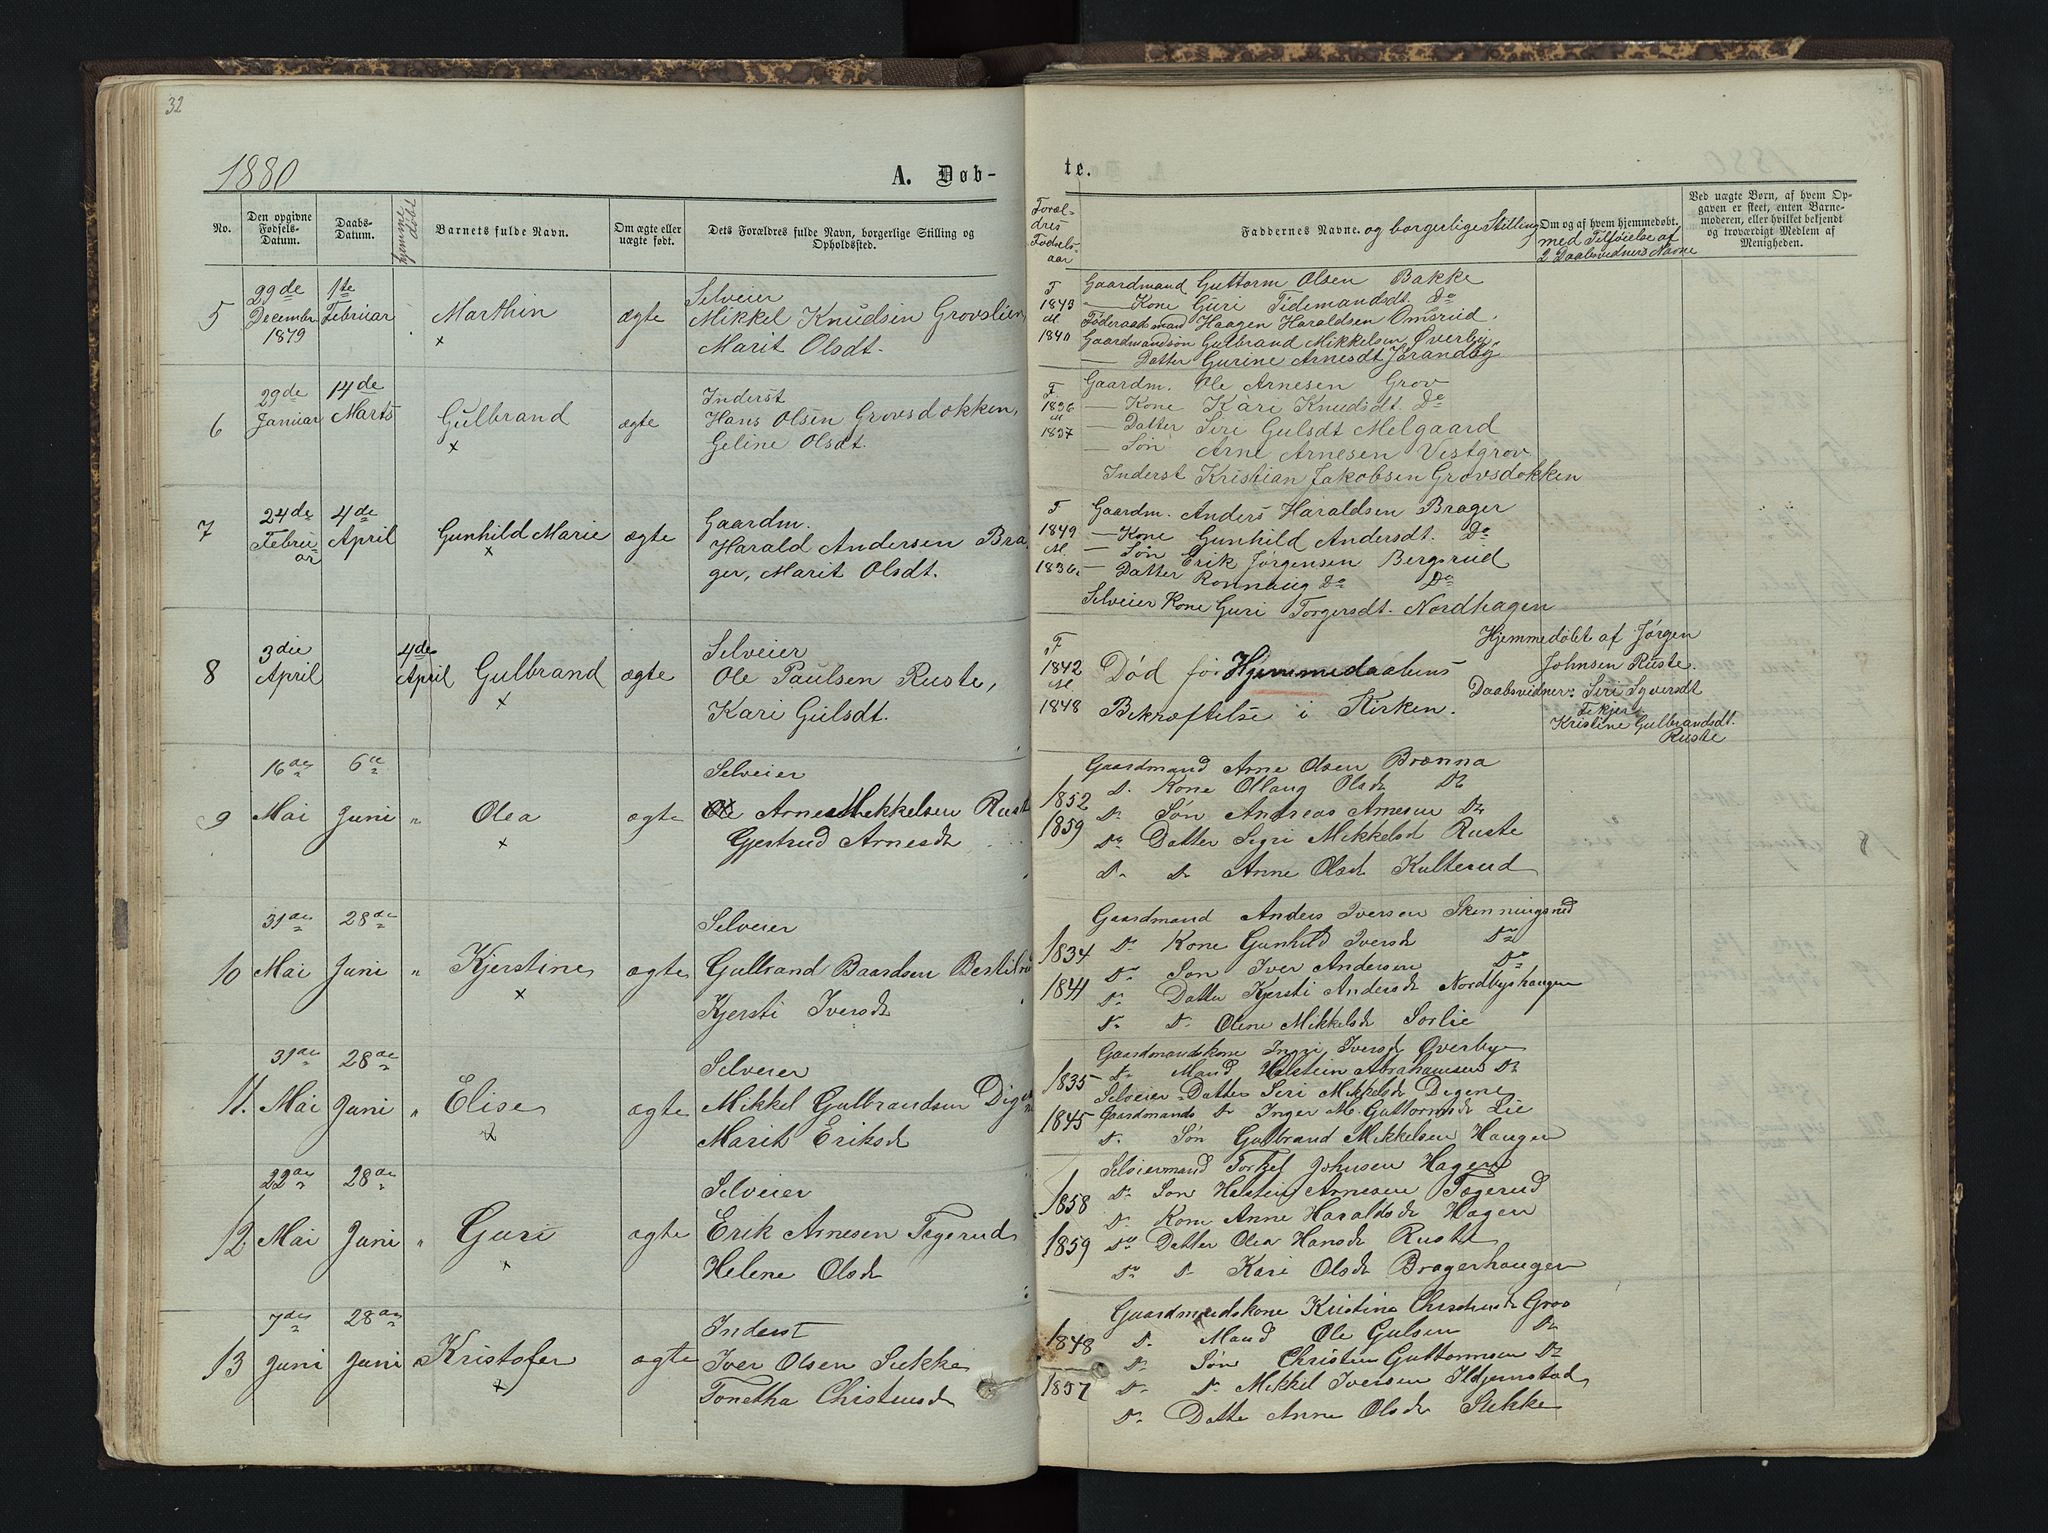 32
1880
A. Døb-
No.
Den opgivne Fødsels-Datum.
Daabs-Datum.
hjemme døbt
Barnets fulde Navn.
Om ægte eller uægte født.
Dets Forældres fulde Navn, borgerlige Stilling og Opholdssted.
5
29de December 1879
1te Februar
Marthin
×
ægte
Selveier
Mikkel Knudsen Grovslien,
Marit Olsdt.
6
29de Januar
14de Marts
Gulbrand
×
ægte
Inderst
Hans Olsen Grovsdokken,
Geline Olsdt.
7
24de Februar
4de April
Gunhild Marie
×
ægte
Gaardm.
Harald Andersen Bra
ger, Marit Olsdt.
8
3die April
4de April
Gulbrand
×
ægte
Selveier
Ole Paulsen Ruste,
Kari Gulsdt.
9
16de Mai
6te Juni
"
Olea
×
ægte
Selveier
Arne Mikkelsen Rust
Gjertrud Arnesdt
10
31de Mai
28de Juni
"
Kjerstine
×
ægte
Selveier
Gulbrand Baardsen
Kjersti Iversdt
11.
31de Mai
28de Juni
"
Elise
×
ægte
Selveier
Mikkel Gulbrandsen
Marit Eriksdt
12
22de Mai
28de Juni
"
Guri
×
ægte
Selveier
Erik Arnesen Tøgerud
Helene Olsdt
13
7de Juni
28de Juni
"
Kristofer
×
ægte
Inderst
Iver Olsen Sløkke
Tonetha
te.
Forældres Fødselsaar
Faddernes Navne og borgerlige Stilling
Om og af hvem hjemmedøbt.
med Tilføielse af
2 Daabsvidners Navne
Ved uægte Børn, af hvem Opgaven er skeet, enten Barnemoderen, eller hvilket bekjendt og troværdigt Medlem af Menigheden.
F
1843
M
1840
Gaardmand Guttorm Olsen Bakke
— Kone Guri Tidemandsdt. Do
Føderaadsmand Haagen Haraldsen Omsrud.
Gaardmandsøn Gulbrand Mikkelsen Øverby
— Datter Gurine Arnesdt Jørandby
F
1836
M
1837
Gaardm. Ole Arnesen Grov
— Kone Kari Knudsdt. Do
— Datter Siri Gulsdt Melgaard
— Søn Arne Arnesen Vestgrov
Inderst Kristian Jakobsen Grovsdokken
F
1849
M
1836.
Gaardm. Anders Haraldsen Brager
— Kone Gunhild Andersdt. Do
— Søn Erik Jørgensen Bergsrud
— Datter Ronnaug Do Do
Selveier Kone Guri Torgersdt. Nordhagen
F
1842
M
1848
Død før Hjemmedaabens
Bekræftelse i Kirken.
Hjemmedøbt af Jørgen
Johnsen Ruste.
Daabsvidner: Siri Syversdt
Kristine Gulbrandsdt.
Ruste
1852
1859
Gaardmand Arne Olsen Brænna
Do Kone Ollaug Olsdt Do
Do Søn Andreas Arnesen Do
Do Datter Sigri Mikkelsdt Ruste
Do Do Anne Olsdt Kulterud
1834
1841
Gaardmand Anders Iversen
Do Kone Gunhild Iversdt Do
Do Søn Iver Andersen Do
Do Datter Kjersti Andersdt Nordbyhaugen
Do Do Oline Mikkelsdt Sørlie
1835
1845
Gaardmandskone Ingri Iversdt Øverbye
Do Mand Helstein Abrahamsen Do
Selveier Datter Siri Mikkelsdt Digene
Gaardmands Do Inger M. Guttormsdt Lie
Do Søn Gulbrand Mikkelsen Haugen
1858
1859
Selveiermand Torkel Johnsen Hagen
Do Søn Helstein Arnesen Tøgerud
Do Kone Anne Haraldsdt Hagen
Do Datter Olea Hansdt Ruste
Do Do Kari Olsdt Bragerhaugen
1848
1857
Gaardmandskone Kristine Grov
Do Mand Ole Gulsen Do
Do Søn Christen Guttormsen Do
Do Do Mikkel Iversen Ildjernstad
Do Datter Anne Olsdt Sløkke